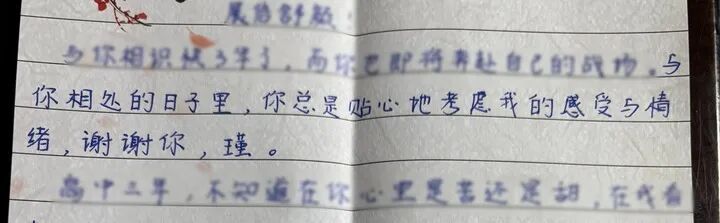 与你相识快3年了，而你已即将奔赴自己的战场。与
你相处的日子里，你总是贴心地考虑我的感受与情
绪，谢谢你，瑾。
高中三年，不知道在你心里是苦还是甜，在我看